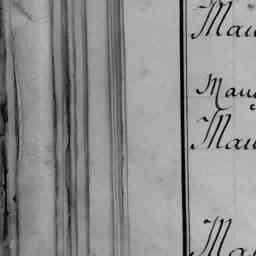 Mau
Mau
Mau
Ma